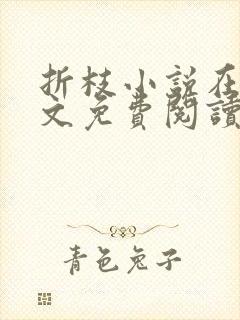 折枝小说在
文免費閱讀
青色兔子